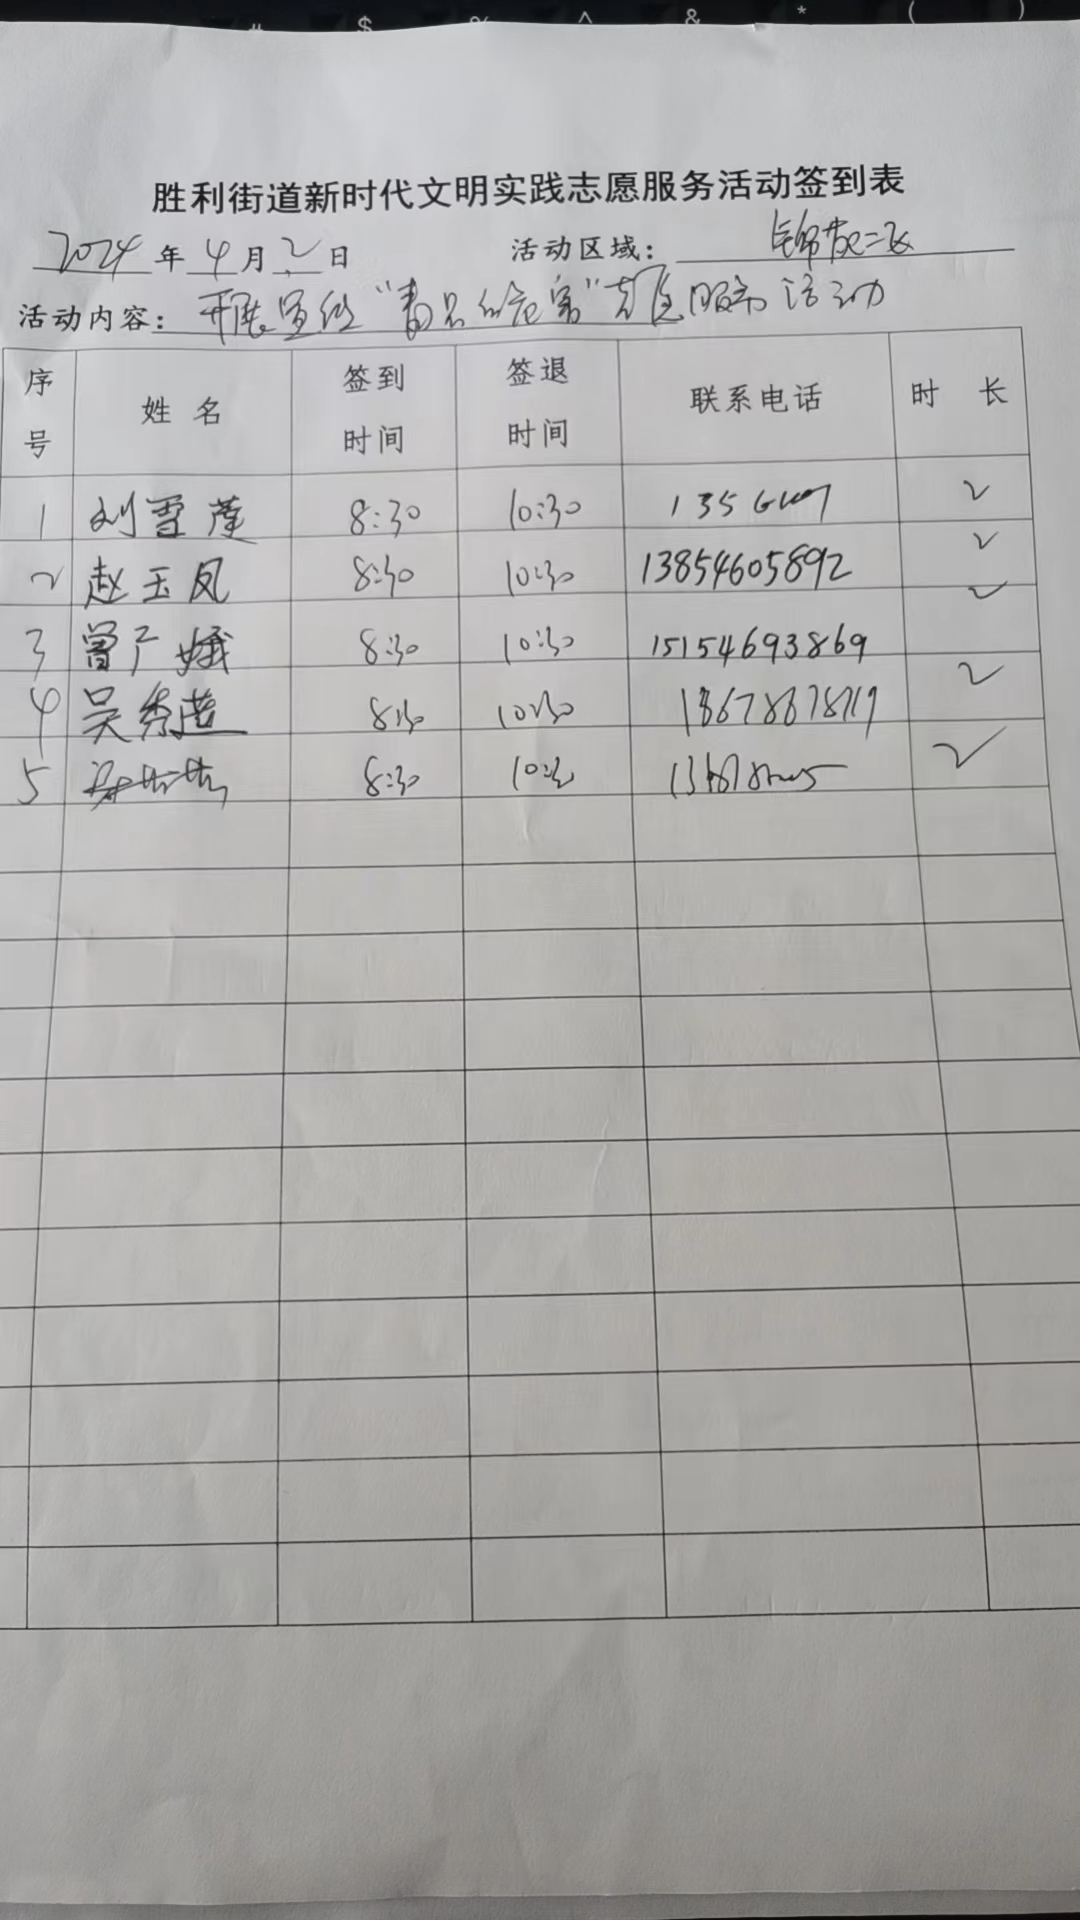 # $ % ^ & * ( )
胜利街道新时代文明实践志愿服务活动签到表
2024年4月2日 活动区域：锦苑二
活动内容：开展宣传“毒品的危害”志愿服务活动
序号 姓名 签到时间 签退时间 联系电话 时长
1 刘雪莲 8:30 10:30 135 2
2 赵玉凤 8:30 10:30 13854605892 2
3 曾广娥 8:30 10:30 15154693869 2
4 吴秀莲 8:30 10:30 2
5 8:30 10:30 2